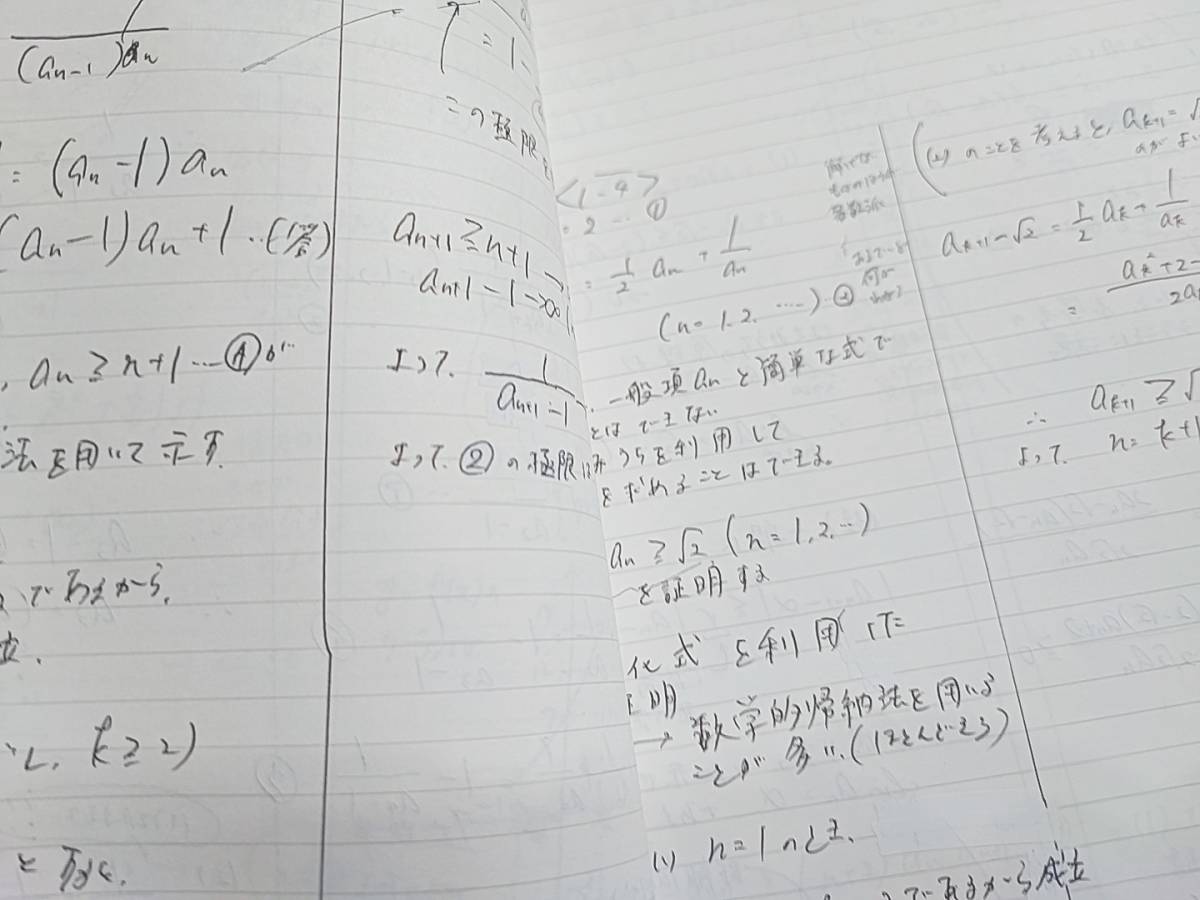 (an-1)an
= (an-1)an
(an-1)an+1 ‥(答)
an≧n+1 … ④が
法を用いて示す.
であるから.
立.
k≧2)
と なる.
= 1-
この極限を
an+1≧n+1
an+1-1→∞
よって. 1/(an+1-1)
よって. ②の極限は
<1-4>
2 … ①
= 1/2 an + 1/an
(n=1.2. ‥‥) ②
一般項anを簡単な式で
とは できない
うらを利用して
ことはできる.
an≧√2 (n=1.2.‥)
を証明する
化式 を利用した
証明
→ 数学的帰納法を用いる
ことが 多い.(ほとんどそう)
(1) n=1のとき.
であるから成立
(2) のことを考えると, ak+1=√
ak+1-√2=1/2 ak+1/ak
= ak²+2-
2a
∴ ak+1≧√
よって. n=k+1